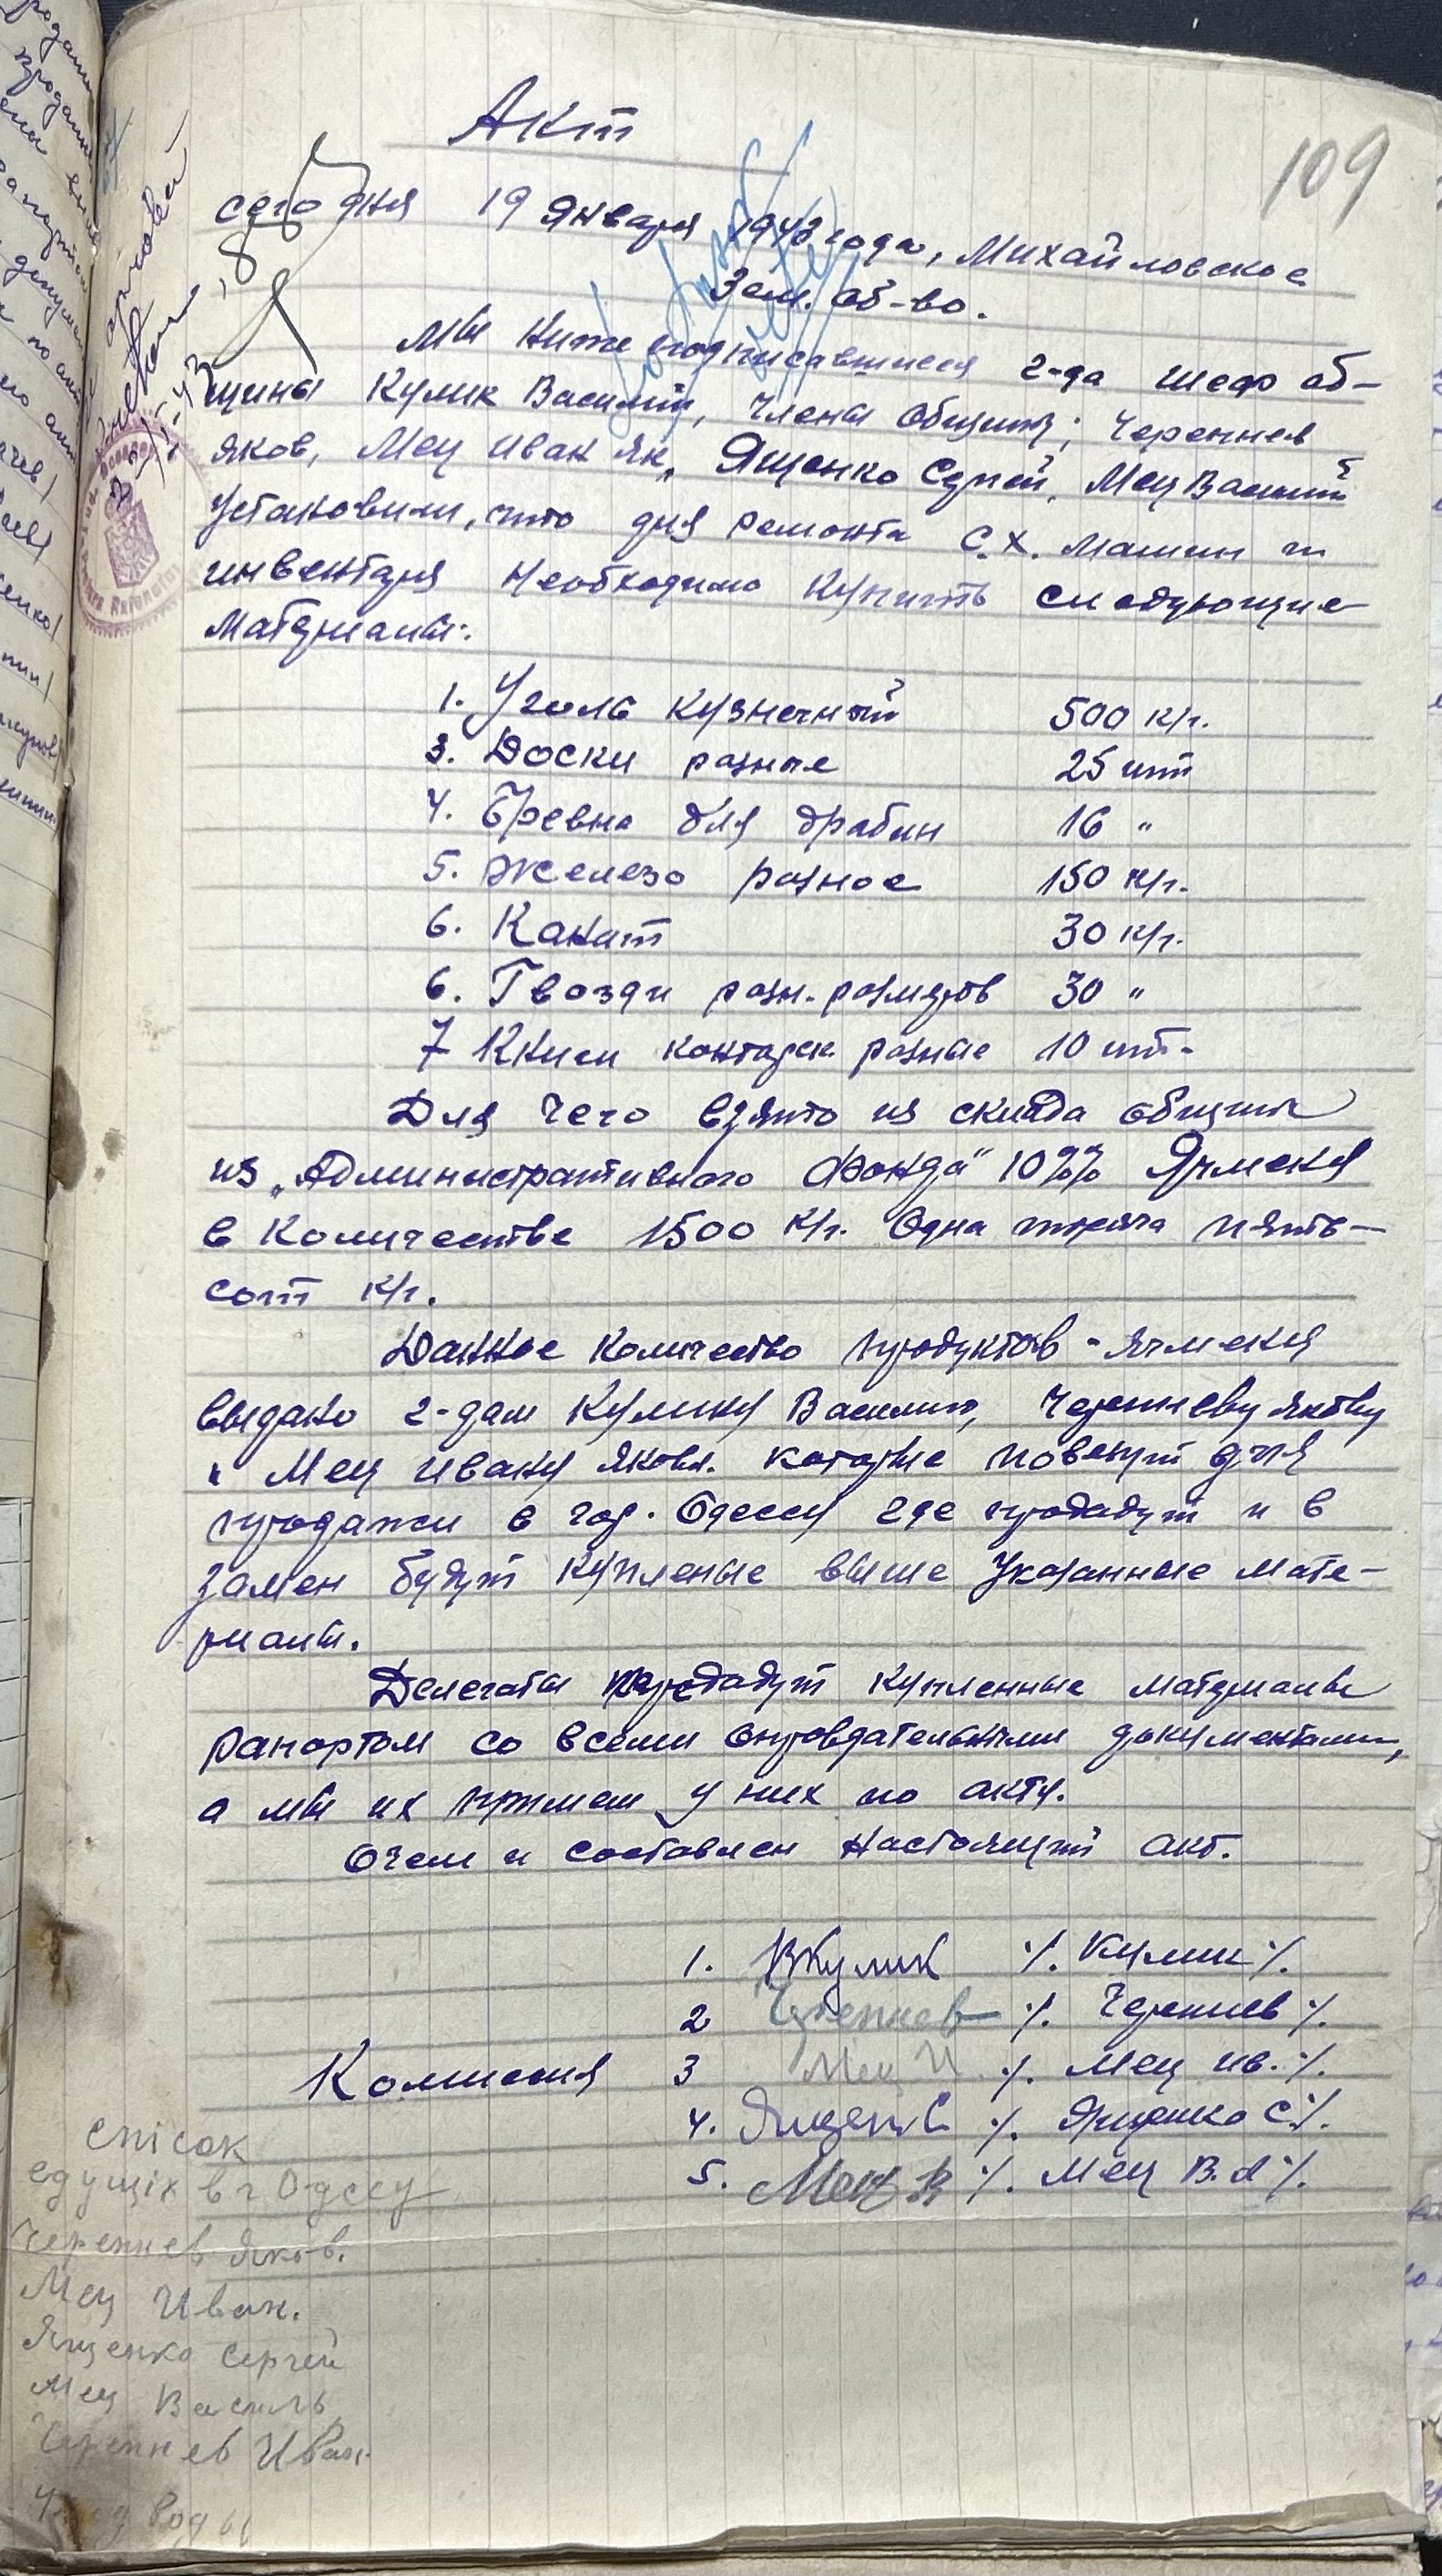 109
Акт
сегодня 19 Января 1943 года, Михайловское
Зем. об-во.
Мы ниже подписавшиеся 2-да шеф об-
щины Кулик Василий, члены общины; Черепнев
Яков, Мец Иван Як., Ященко Сергей, Мец Василий
Установили, что для ремонта С.Х. машин и
инвентаря необходимо купить следующие
материалы:
1. Уголь кузнечный 500 к/г.
3. Доски разные 25 шт
4. Бревна для драбин 16 "
5. Железо разное 150 к/г.
6. Канат 30 к/г.
6. Гвозди разн. размеров 30 "
7 Книги конторск. разные 10 шт.
Для чего взято из склада общины
из „Административного Фонда" 10%% Ячменя
в количестве 1500 к/г. Одна тысяча пять-
сот к/г.
Данное количество продуктов - ячменя
выдано 2-дам Кулику Василию, Черепневу Якову
и Мец Ивану Яковл. которые повезут для
продажи в гор. Одессу где продадут и в
замен будут купленые выше указанные мате-
риалы.
Делегаты передадут купленные материалы
рапортом со всеми оправдательными документами,
а мы их примем у них по акту.
О чем и составлен настоящий акт.
1. ВКулик %. Кулик %.
2 Черепнев %. Черепнев %.
Комиссия 3 Мец И. %. Мец Ив. %.
4. Ященко С %. Ященко С %.
5. Мец В %. Мец В. %.
Список
едущіх в г Одессу
Черепнев Яков.
Мец Иван.
Ященко Сергей
Мец Василь
Черепнев Иван